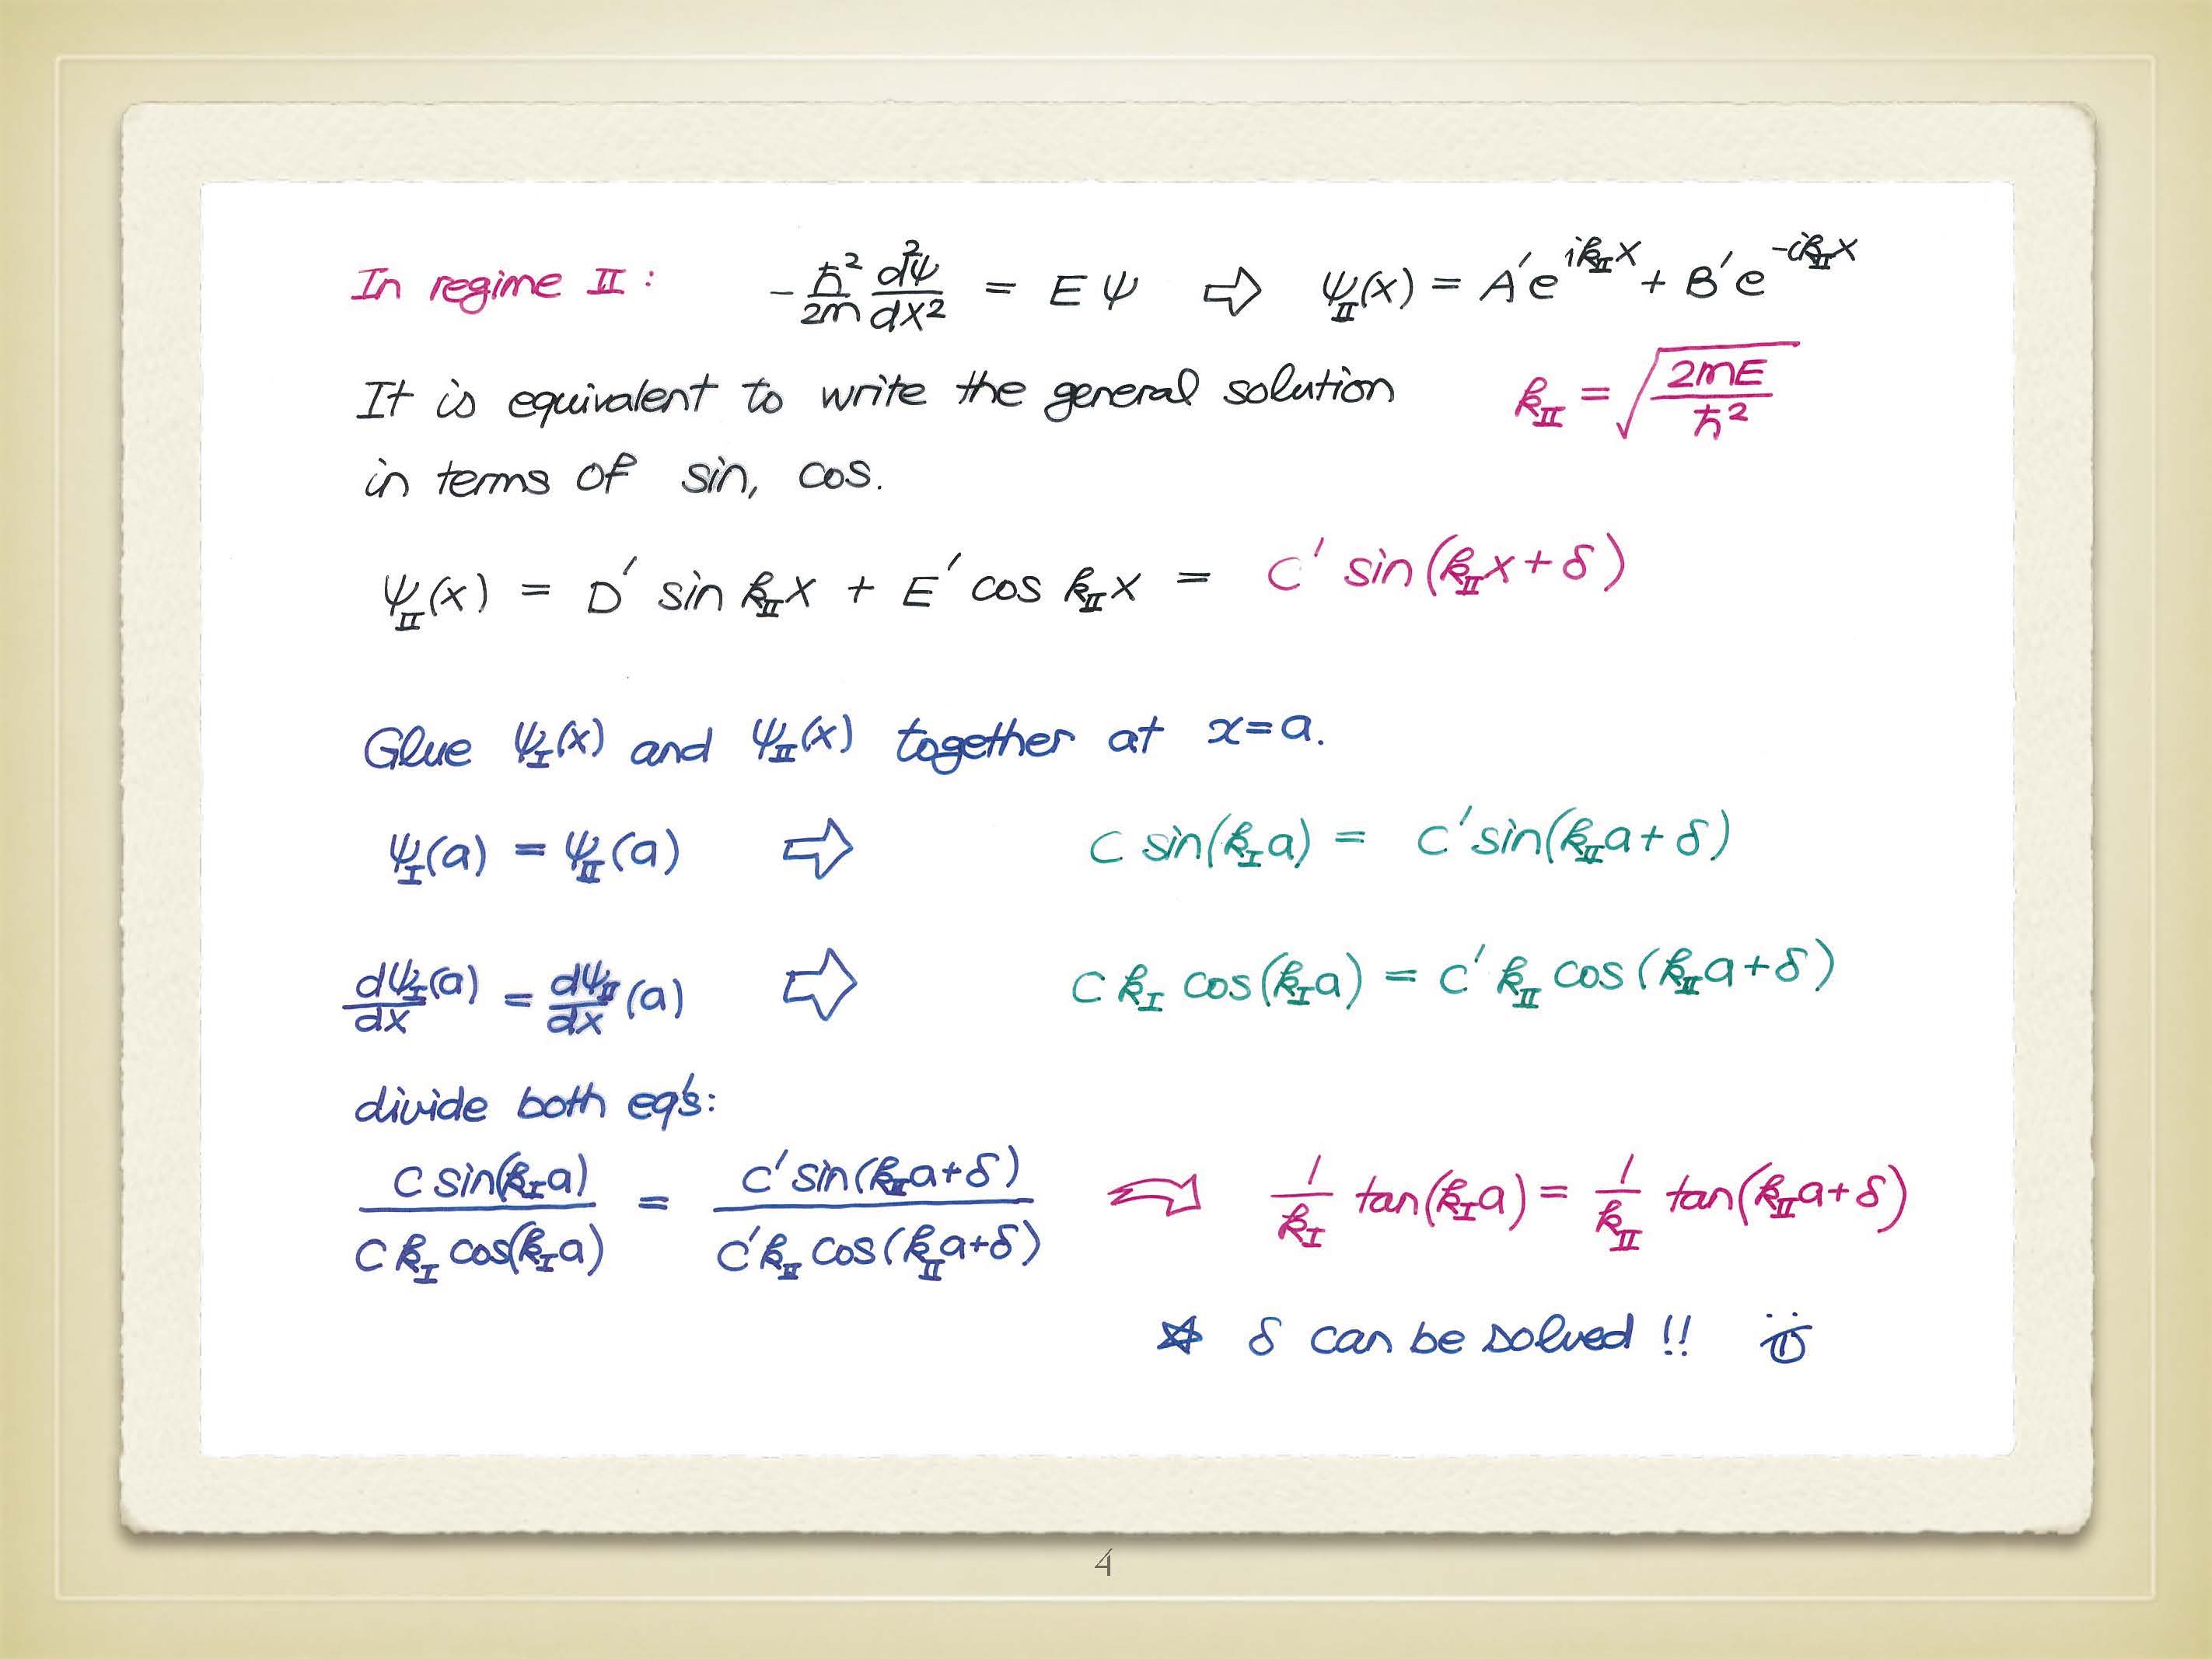 In regime II : -ℏ²/2m d²ψ/dx² = E ψ ⇨ ψ_II(x) = A′e^{ik_II x} + B′e^{-ik_II x}
It is equivalent to write the general solution k_II = √(2mE/ℏ²)
in terms of sin, cos.
ψ_II(x) = D′ sin k_II x + E′ cos k_II x = C′ sin(k_II x + δ)
Glue ψ_I(x) and ψ_II(x) together at x=a.
ψ_I(a) = ψ_II(a) ⇨ C sin(k_I a) = C′ sin(k_II a + δ)
dψ_I/dx (a) = dψ_II/dx (a) ⇨ C k_I cos(k_I a) = C′ k_II cos(k_II a + δ)
divide both eq's:
C sin(k_I a) / C k_I cos(k_I a) = C′ sin(k_II a + δ) / C′ k_II cos(k_II a + δ) ⇨ 1/k_I tan(k_I a) = 1/k_II tan(k_II a + δ)
☆ δ can be solved !!
4